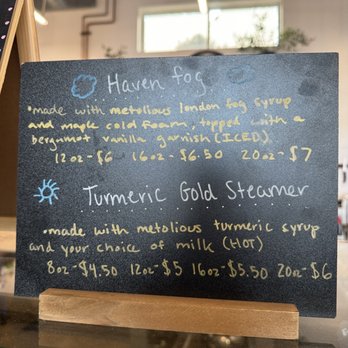 Haven fog
•made with metolious london fog syrup
and maple cold foam, topped with a
bergumot vanilla garnish (ICED)
12oz-$6 16oz-$6.50 20oz-$7
Turmeric Gold Steamer
•made with metolious turmeric syrup
and your choice of milk (HOT)
8oz-$4.50 12oz-$5 16oz-$5.50 20oz-$6